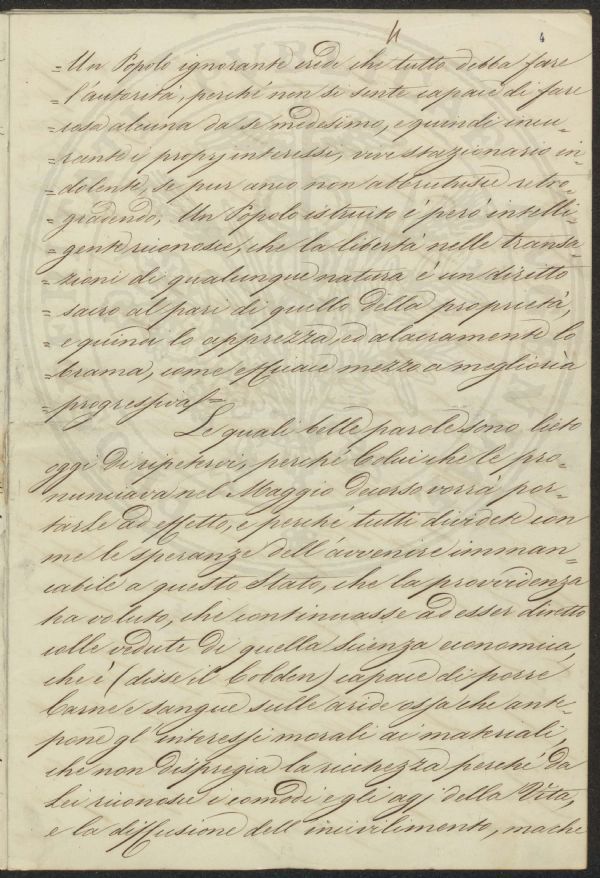 4 4
= Un Popolo ignorante crede che tutto debba fare
= l'autorità, perché non si sente capace di fare
= cosa alcuna da se medesimo, e quindi incu-
= rante i proprj interessi, vive stazionario in-
= dolente, se pur anco non abbrutisce retro-
= gradendo; Un Popolo istruito e però intelli-
= gente riconosce, che la libertà nelle transa-
= zioni di qualunque natura è un diretto
= sacro al pari di quello della proprietà,
= e quindi lo apprezza, ed alacramente lo
= brama, come efficace mezzo a megliorìa
= progressiva! =
Le quali belle parole sono lieto
oggi di ripetervi, perché Colui che le pro-
nunciava nel Maggio decorso vorrà por-
tarle ad effetto, e perché tutti dividete con
me le speranze dell'avvenire imman-
cabile a questo Stato, che la provvidenza
ha voluto, che continuasse ad esser diretto
colle vedute di quella scienza economica,
che è (disse il Cobden) capace di porre
Carne e sangue sulle aride ossa che ante-
pone gl'interessi morali ai materiali,
che non dispregia la ricchezza perché da
Lei riconosce i comodi e gli agj della Vita,
e la diffusione dell'incivilimento, ma che